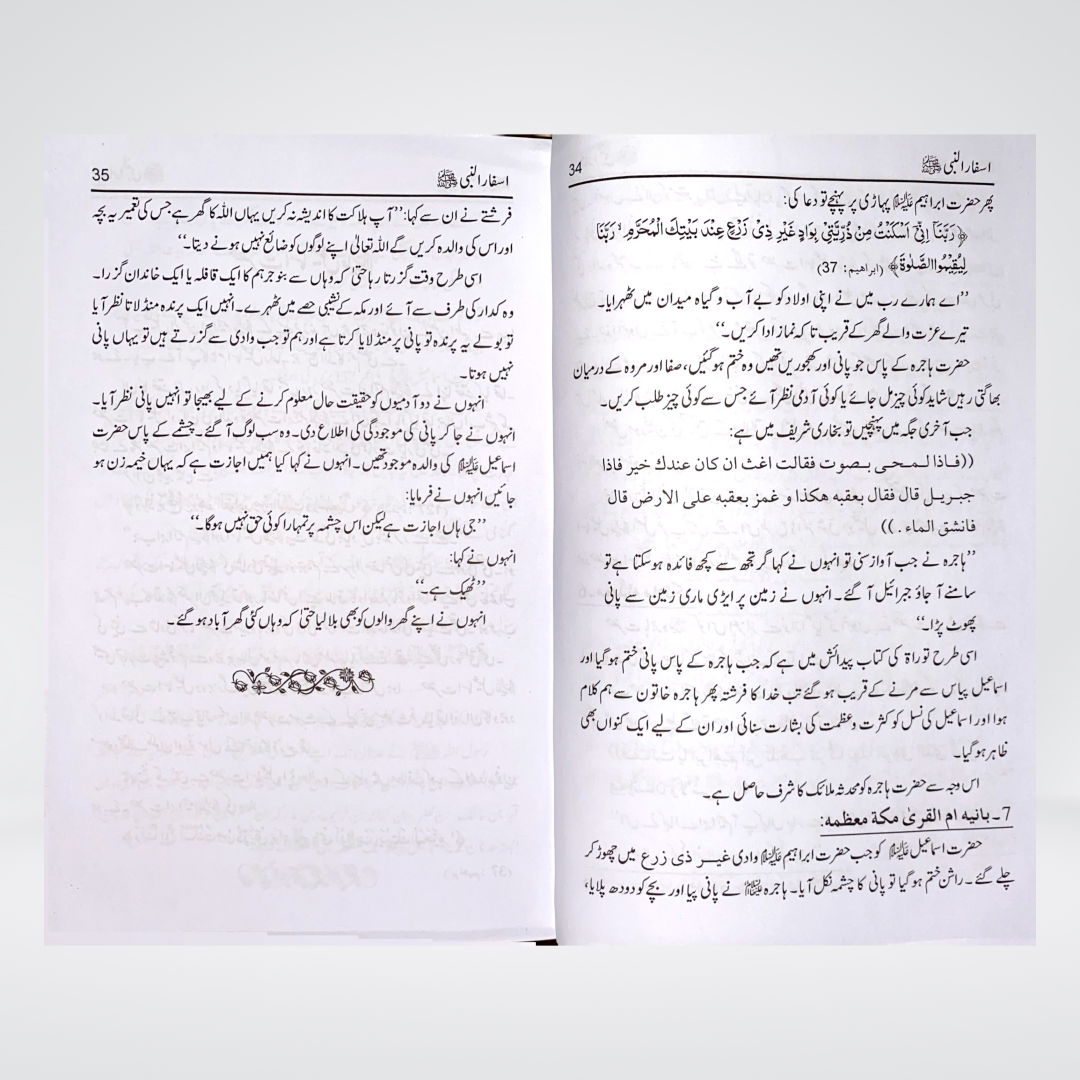 اسفار النبی ﷺ 34
پھر حضرت ابراہیم علیہ السلام پہاڑی پر پہنچے تو دعا کی:
﴿رَبَّنَا اِنِّیْ اَسْكَنْتُ مِنْ ذُرِّيَّتِيْ بِوَادٍ غَيْرِ ذِيْ زَرْعٍ عِنْدَ بَيْتِكَ الْمُحَرَّمِ ۙ رَبَّنَا
لِيُقِيْمُوا الصَّلٰوةَ﴾ (ابراھیم: 37)
’’اے ہمارے رب میں نے اپنی اولاد کو بے آب و گیاہ میدان میں ٹھہرایا۔
تیرے عزت والے گھر کے قریب تا کہ نماز ادا کریں۔‘‘
حضرت ہاجرہ کے پاس جو پانی اور کھجوریں تھیں وہ ختم ہوگئیں، صفا اور مروہ کے درمیان
بھاگتی رہیں شاید کوئی چیز مل جائے یا کوئی آدمی نظر آئے جس سے کوئی چیز طلب کریں۔
جب آخری جگہ میں پہنچیں تو بخاری شریف میں ہے:
((فاذا لمحی بصوت فقالت اغث ان کان عندك خیر فاذا
جبریل قال فقال بعقبه هكذا و غمز بعقبه على الارض قال
فانشق الماء.))
’’ہاجرہ نے جب آواز سنی تو انہوں نے کہا گر تجھ سے کچھ فائدہ ہوسکتا ہے تو
سامنے آ جاؤ جبرائیل آ گئے۔ انہوں نے زمین پر ایڑی ماری زمین سے پانی
پھوٹ پڑا۔‘‘
اسی طرح توراۃ کی کتاب پیدائش میں ہے کہ جب ہاجرہ کے پاس پانی ختم ہو گیا اور
اسماعیل پیاس سے مرنے کے قریب ہوگئے تب خدا کا فرشتہ پھر ہاجرہ خاتون سے ہم کلام
ہوا اور اسماعیل کی نسل کو کثرت و عظمت کی بشارت سنائی اور ان کے لیے ایک کنواں بھی
ظاہر ہو گیا۔
اس وجہ سے حضرت ہاجرہ کو محدثہ ملائک کا شرف حاصل ہے۔
7۔ بانیه ام القریٰ مكة معظمه:
حضرت اسماعیل علیہ السلام کو جب حضرت ابراہیم علیہ السلام وادی غیر ذی زرع میں چھوڑ کر
چلے گئے۔ راشن ختم ہو گیا تو پانی کا چشمہ نکل آیا۔ ہاجرہ علیہا السلام نے پانی پیا اور بچے کو دودھ پلایا،
اسفار النبی ﷺ 35
فرشتے نے ان سے کہا: ’’آپ ہلاکت کا اندیشہ نہ کریں یہاں اللہ کا گھر ہے جس کی تعمیر یہ بچہ
اور اس کی والدہ کریں گے اللہ تعالیٰ اپنے لوگوں کو ضائع نہیں ہونے دیتا۔‘‘
اسی طرح وقت گزرتا رہا حتیٰ کہ وہاں سے بنو جرہم کا ایک قافلہ یا ایک خاندان گزرا۔
وہ کدار کی طرف سے آئے اور مکہ کے نشیبی حصے میں ٹھہرے۔ انہیں ایک پرندہ منڈلاتا نظر آیا
تو بولے یہ پرندہ تو پانی پر منڈلایا کرتا ہے اور ہم تو جب وادی سے گزرتے ہیں تو یہاں پانی
نہیں ہوتا۔
انہوں نے دو آدمیوں کو حقیقت حال معلوم کرنے کے لیے بھیجا تو انہیں پانی نظر آیا۔
انہوں نے جا کر پانی کی موجودگی کی اطلاع دی۔ وہ سب لوگ آ گئے۔ چشمے کے پاس حضرت
اسماعیل علیہ السلام کی والدہ موجود تھیں۔ انہوں نے کہا کیا ہمیں اجازت ہے کہ یہاں خیمہ زن ہو
جائیں انہوں نے فرمایا:
’’جی ہاں اجازت ہے لیکن اس چشمہ پر تمہارا کوئی حق نہیں ہوگا۔‘‘
انہوں نے کہا:
’’ٹھیک ہے۔‘‘
انہوں نے اپنے گھر والوں کو بھی بلا لیا حتیٰ کہ وہاں کئی گھر آباد ہوگئے۔